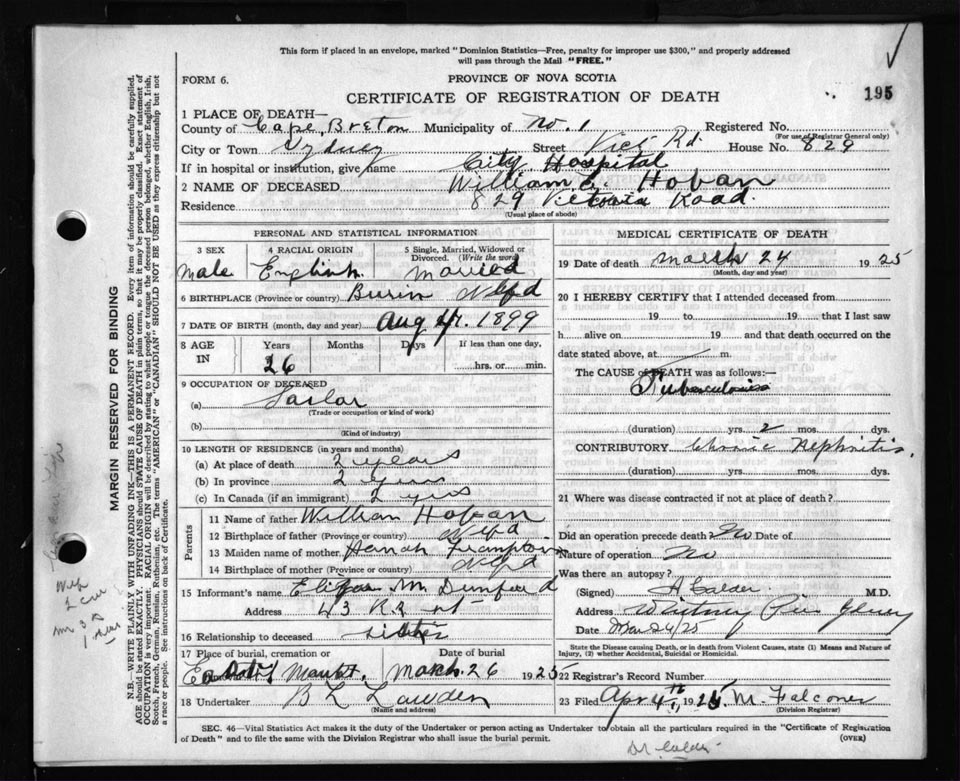 This form if placed in an envelope, marked "Dominion Statistics—Free, penalty for improper use $300," and properly addressed
will pass through the Mail "FREE."
FORM 6.
PROVINCE OF NOVA SCOTIA
195
CERTIFICATE OF REGISTRATION OF DEATH
1 PLACE OF DEATH—
County of Cape Breton Municipality of No. 1 Registered No.
(For use of Registrar General only)
City or Town Sydney Street Vict Rd. House No. 829
If in hospital or institution, give name City Hospital
2 NAME OF DECEASED William Hoban
Residence 829 Victoria Road.
(Usual place of abode)
PERSONAL AND STATISTICAL INFORMATION
3 SEX 4 RACIAL ORIGIN 5 Single, Married, Widowed or
Divorced. (Write the word)
Male English Married
6 BIRTHPLACE (Province or country) Burin Nfld
7 DATE OF BIRTH (month, day and year) Aug 1899
8 AGE IN Years Months Days If less than one day,
26 hrs. or min.
9 OCCUPATION OF DECEASED
(a) Sailor
(Trade or occupation or kind of work)
(b)
(Kind of industry)
10 LENGTH OF RESIDENCE (in years and months)
(a) At place of death 2 years
(b) In province 2 years
(c) In Canada (if an immigrant) 2 yrs
Parents
11 Name of father William Hoban
12 Birthplace of father (Province or country) Nfld.
13 Maiden name of mother Hanah Frampton
14 Birthplace of mother (Province or country) Nfld
15 Informant's name M Dunford
Address 43
16 Relationship to deceased sister
17 Place of burial, cremation or Date of burial
Mount. March. 26 1925
18 Undertaker B L Lawden
(Name and address)
MEDICAL CERTIFICATE OF DEATH
19 Date of death March 24 1925
(Month, day and year)
20 I HEREBY CERTIFY that I attended deceased from
19 to 19 that I last saw
h. alive on 19 and that death occurred on the
date stated above, at m.
The CAUSE of DEATH was as follows:—
Tuberculosis
(duration) yrs. 2 mos. dys.
CONTRIBUTORY Chronic Nephritis.
(duration) yrs. mos. dys.
21 Where was disease contracted if not at place of death?
Did an operation precede death? No Date of
Nature of operation No
Was there an autopsy?
(Signed) A Calder M.D.
Address Whitney Pier
Date Mar 24/25
State the Disease causing Death, or in death from Violent Causes, state (1) Means and Nature of
Injury, (2) whether Accidental, Suicidal or Homicidal.
22 Registrar's Record Number
23 Filed Apr 4th 1925 M. Falconer
(Division Registrar)
SEC. 46—Vital Statistics Act makes it the duty of the Undertaker or person acting as Undertaker to obtain all the particulars required in the "Certificate of Registration
of Death" and to file the same with the Division Registrar who shall issue the burial permit. (OVER)
Dr. Calder
MARGIN RESERVED FOR BINDING
N.B.—WRITE PLAINLY WITH UNFADING INK—THIS IS A PERMANENT RECORD. Every item of information should be carefully supplied.
AGE should be stated EXACTLY. PHYSICIANS should STATE CAUSE OF DEATH in plain terms, so that it may be properly classified. Exact statement of
OCCUPATION is very important. RACIAL ORIGIN will be described by stating to what people or tongue the deceased person belonged, whether English, Irish,
Scotch, French, German, Russian, Ruthenian, etc. The terms "AMERICAN" or "CANADIAN" SHOULD NOT BE USED as they express citizenship but not
a race or people. See instructions on back of Certificate.